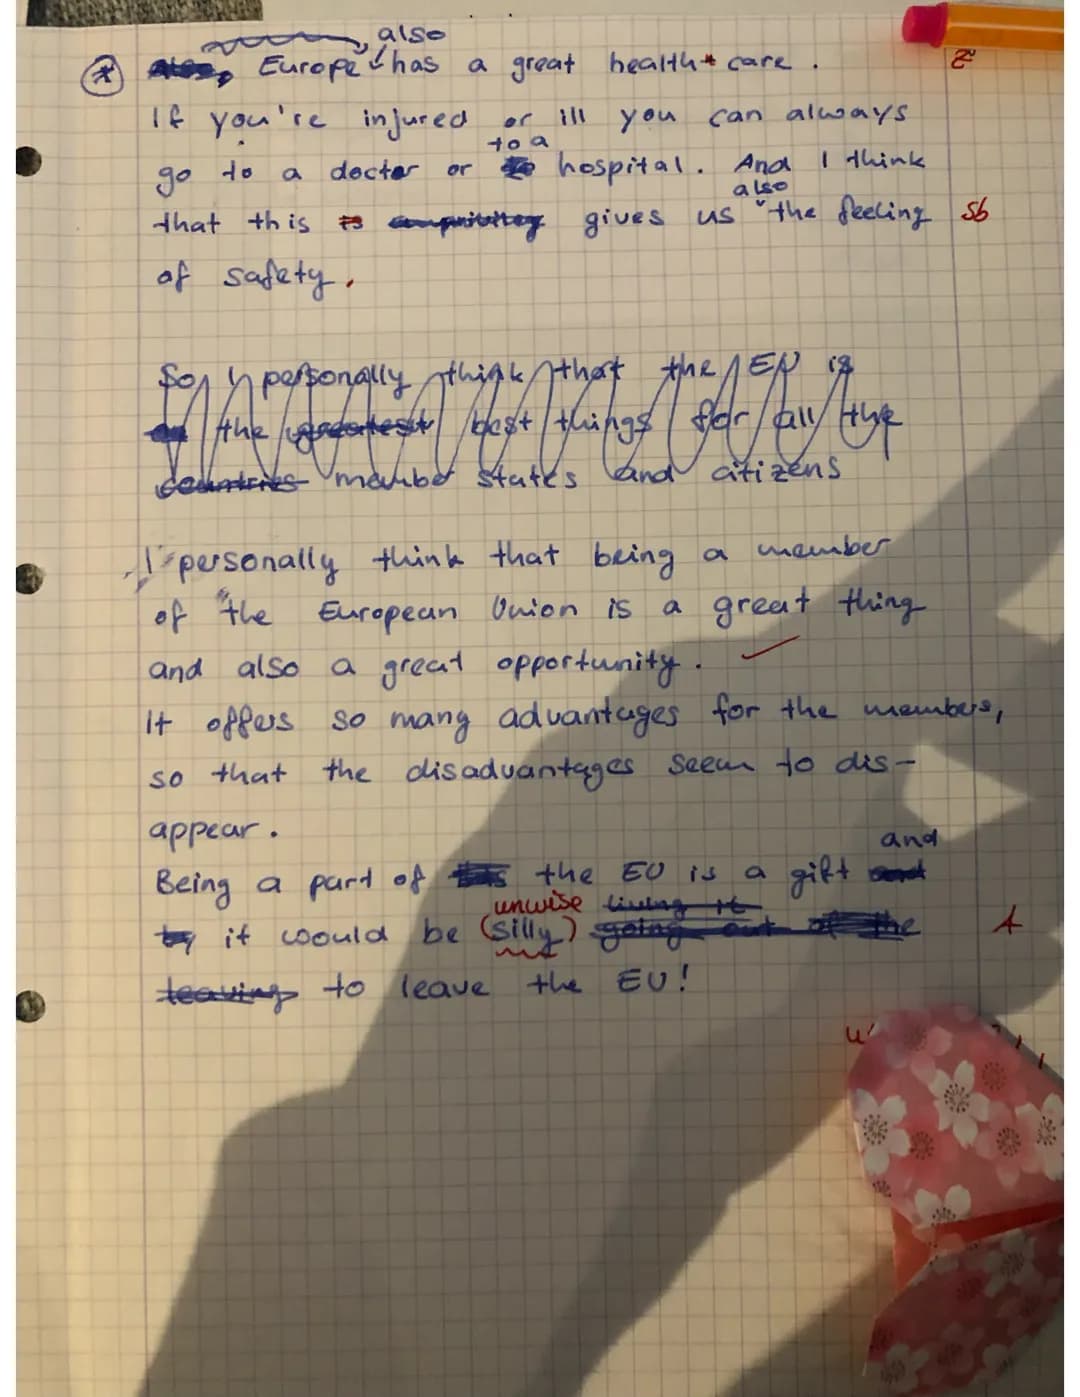 also
* Europe has a great health care. Z
If you're injured or ill you can always
to a
go to a doctor or hospital. And I think
also
that this is gives us the feeling Sb
of safety.
So I personally think that the EU is
the greatest best things for all the
countries member states and citizens
I personally think that being a member
of the European Union is a great thing
and also a great opportunity.
It offers so many advantages for the members,
so that the disadvantages seem to dis-
appear.
and
Being a part of the EU is a gift and
unwise living it
by it would be (silly) going out of the A
leaving to leave the EU!